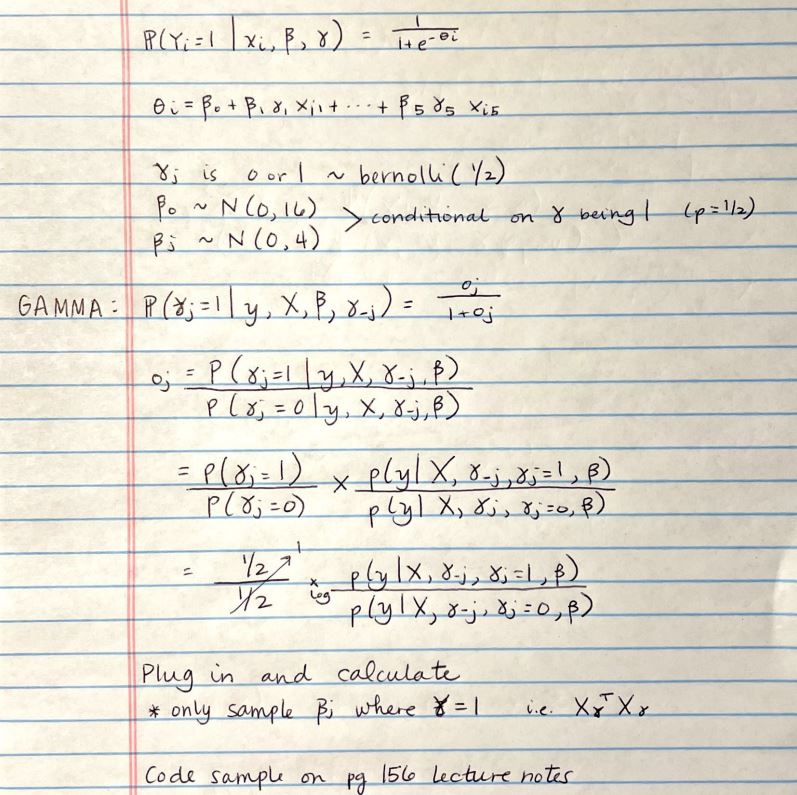 ℙ(Yi=1 | xi, β, γ) = 1 / 1+e^-θi
θi = β0 + β1 γ1 xi1 + ··· + β5 γ5 xi5
γj is 0 or 1 ~ bernolli(1/2)
β0 ~ N(0,16) > conditional on γ being 1 (p=1/2)
βj ~ N(0,4)
GAMMA: ℙ(γj=1 | y, X, β, γ-j) = oj / 1+oj
oj = P(γj=1 | y, X, γ-j, β) / P(γj=0 | y, X, γ-j, β)
= P(γj=1) / P(γj=0) × p(y | X, γ-j, γj=1, β) / p(y | X, γj, γj=0, β)
= 1/2 / 1/2 1 × log p(y | X, γ-j, γj=1, β) / p(y | X, γ-j, γj=0, β)
Plug in and calculate
* only sample βj where γ=1 i.e. Xγ^T Xγ
Code sample on pg 156 lecture notes